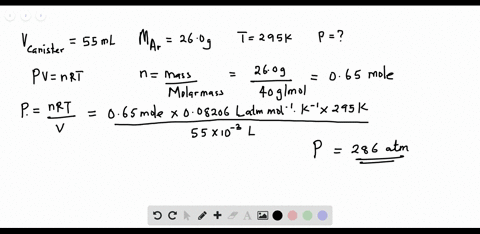 V Canister = 55 mL M Ar = 26.0g T = 295K P = ?
PV = nRT n = mass / Molar mass = 26.0g / 40 g/mol = 0.65 mole
P = nRT / V = 0.65 mole × 0.08206 L atm mol⁻¹. K⁻¹ × 295 K / 55 × 10⁻³ L
P = 286 atm